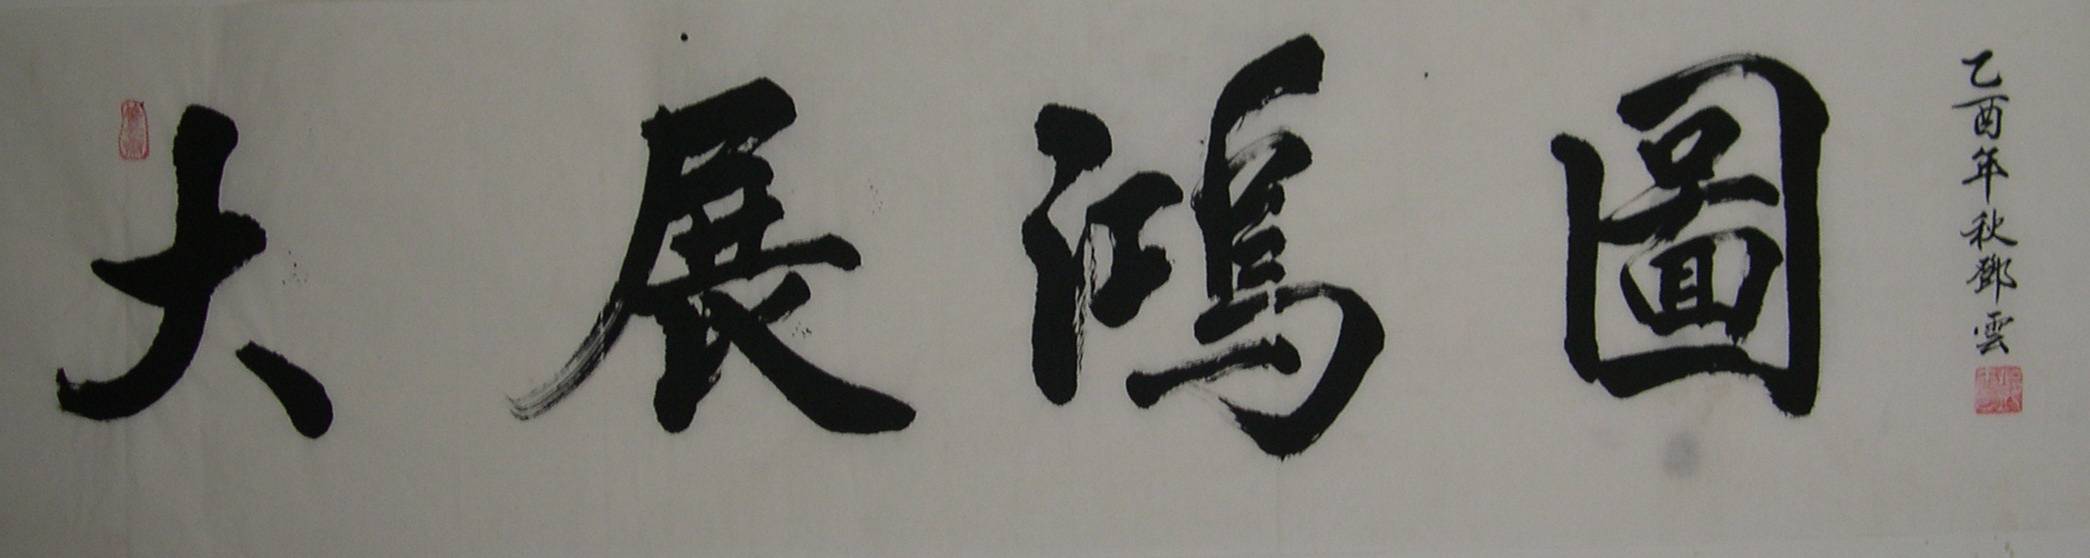 大展鴻圖
乙酉年秋鄧雲